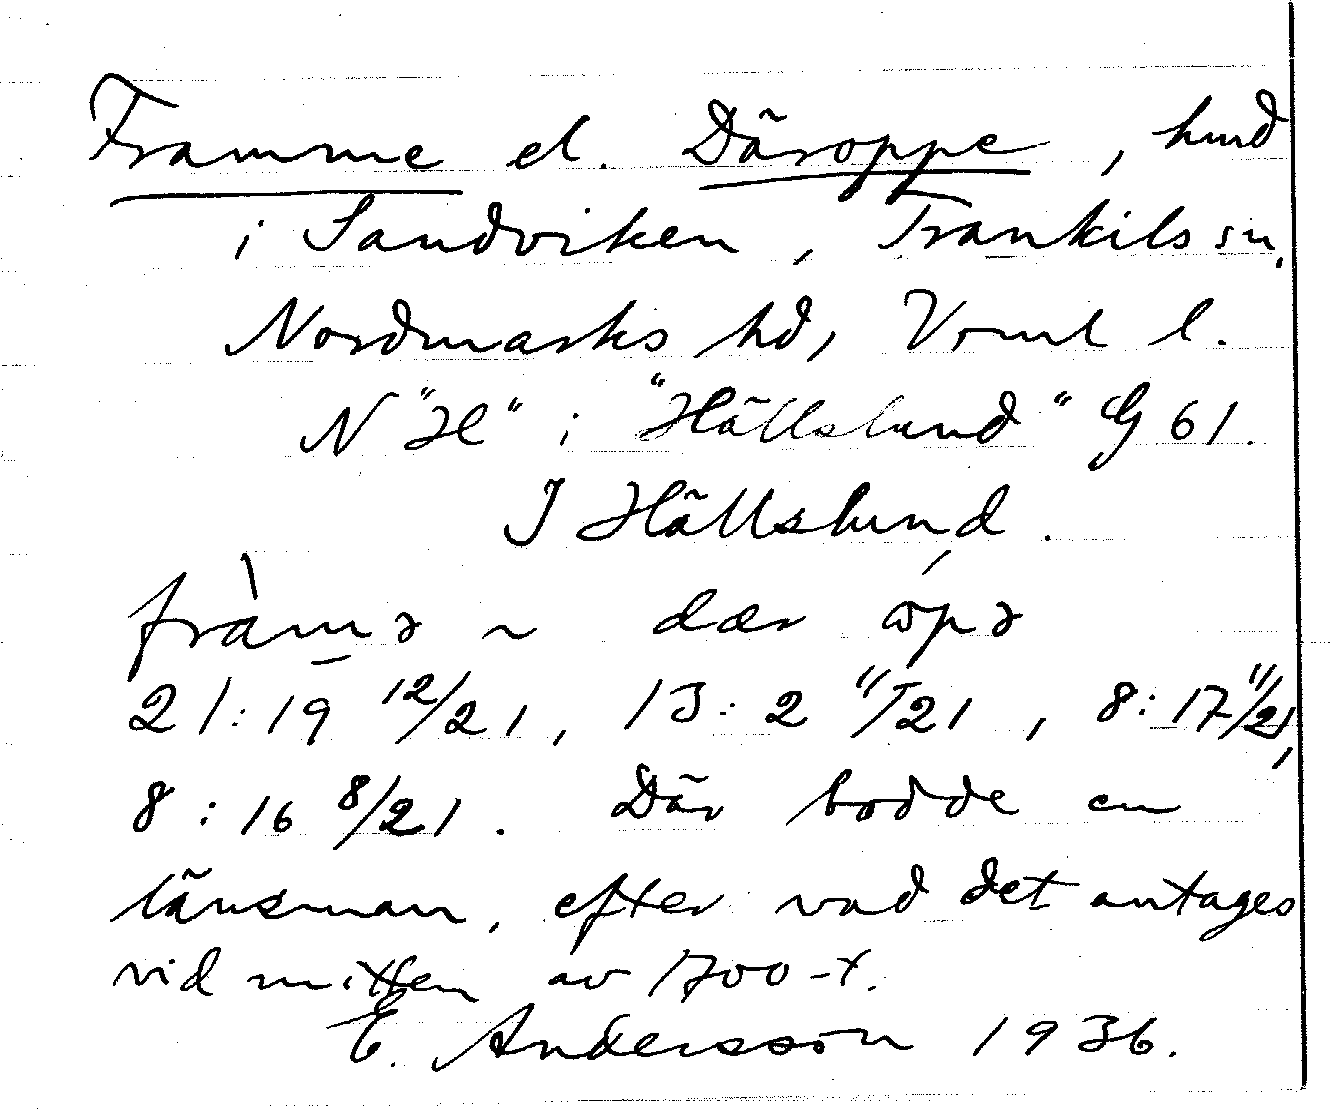 Framme el. Däroppe, hmd
i Sandviken, Trankils sn,
Nordmarks hd, Vrml l.
N "H" i "Hällslund" G 61.
I Hällslund.
fràmə ~ dær ópə
21:19 12/21, 13:2 11/21, 8:17 11/21,
8:16 8/21. Där bodde en
länsman, efter vad det antages
vid mitten av 1700-t.
E. Andersson 1936.